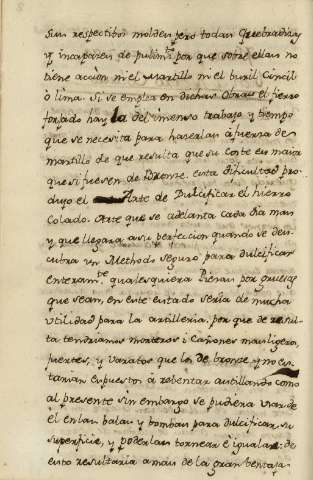 Sus respectibos moldes pero todas Quebradizas
y incapazes de pulim.to por que sobre ellas no
tiene accion ni el Martillo ni el buril Cincil
ò lima. Si se emplea en dichas Obras el fierro
forjado hay la del inmenso trabajo y tiempo
que se necesita para hacerlas à fuersa de
martillo de que resulta que su Coste es maior
que si fuesen de Bronze. esta dificultad pro-
dujo el Arte de Dulcificar el hierro
Colado. Arte que se adelanta cada dia mas
y que llegara asu perfeccion quando se des-
cubra un Methodo seguro para dulcificar
enteram.te qualesquiera Piesas por gruesas
que sean, en este estado seria de mucha
utilidad para la artilleria. por que de resul-
ta tendriamos morteros ì Cañones mas ligeros,
fuertes, y varatos que los de bronze y no es-
tarian expuestos à rebentar astillando como
al presente sin embargo se pudiera usar de
èl en las balas y bombas para dulcificar su
superficie, y poderlas tornear è igualar: de
esto resultaria a mas de la gran bentaja